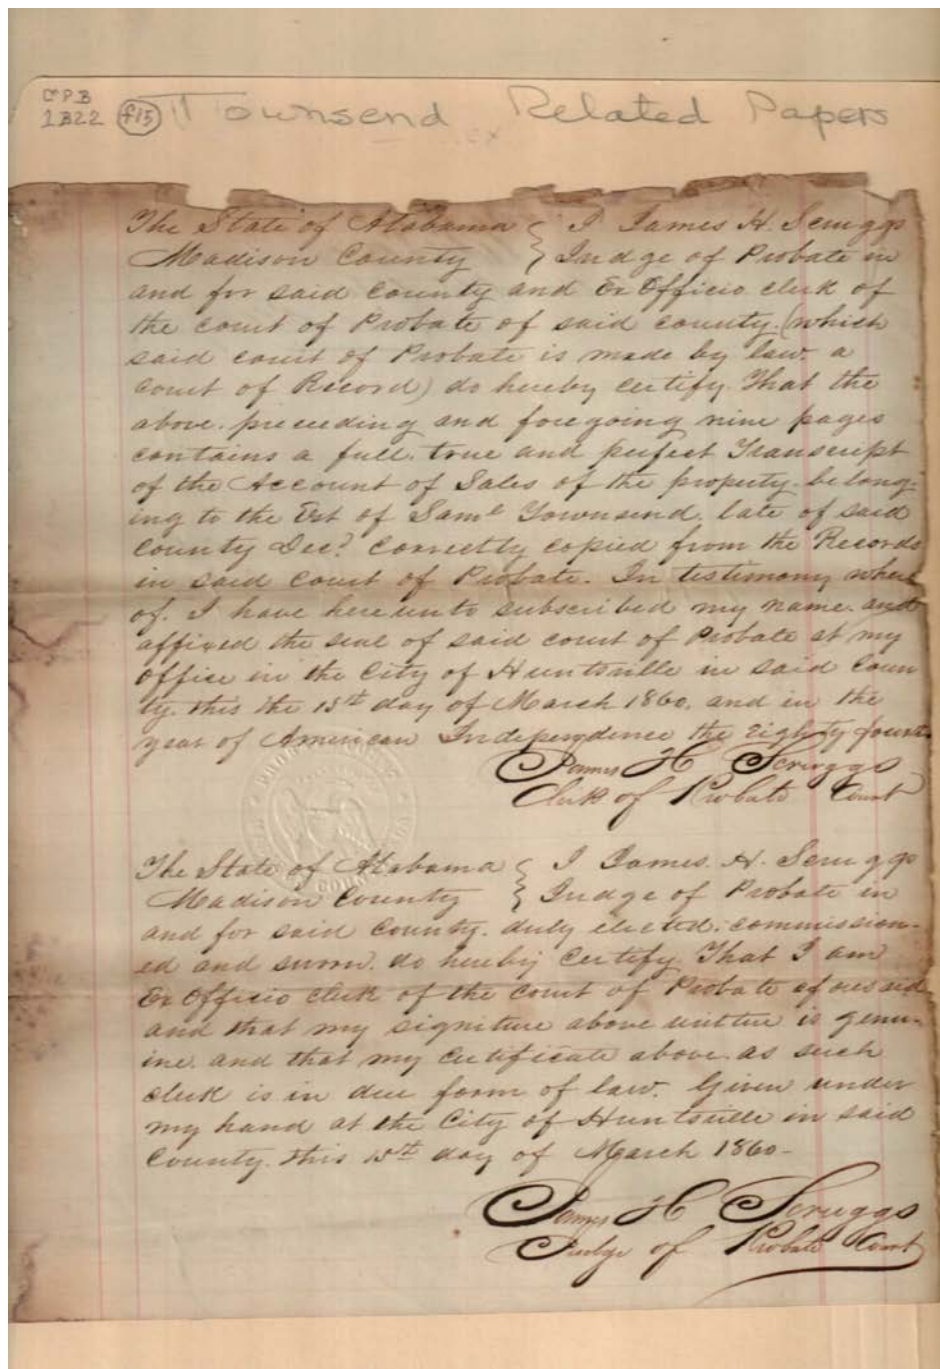 CPB
1B22 f15 Townsend Related Papers
The State of Alabama { I James H. Scruggs
Madison County } Judge of Probate in
and for said County and Ex Officio clerk of
the court of Probate of said county. (which
said court of Probate is made by law. a
court of Record) do hereby certify. That the
above. preceeding and foregoing nine pages
contains a full. true and perfect Transcript
of the Account of Sales of the property belong-
ing to the Est of Saml Townsend. late of said
County Decd. Correctly copied from the Records
in said Court of Probate. In testimony where
of. I have hereunto subscribed my name. and
affixed the seal of said court of Probate at my
office in the City of Huntsville in said Coun
ty. this the 15th day of March 1860. and in the
year of American Independence the Eighty fourth
James H Scruggs
Clerk of Probate Court
The State of Alabama { I James. H. Scruggs
Madison County } Judge of Probate in
and for said County. duly elected. commission-
ed and sworn. do hereby Certify. That I am
Ex Officio clerk of the Court of Probate aforesaid
and that my signiture above written is genu-
ine. and that my Certificate above. as such
clerk is in due form of law. Given under
my hand at the City of Huntsville in said
County. this 15th day of March 1860-
James H Scruggs
Judge of Probate Court